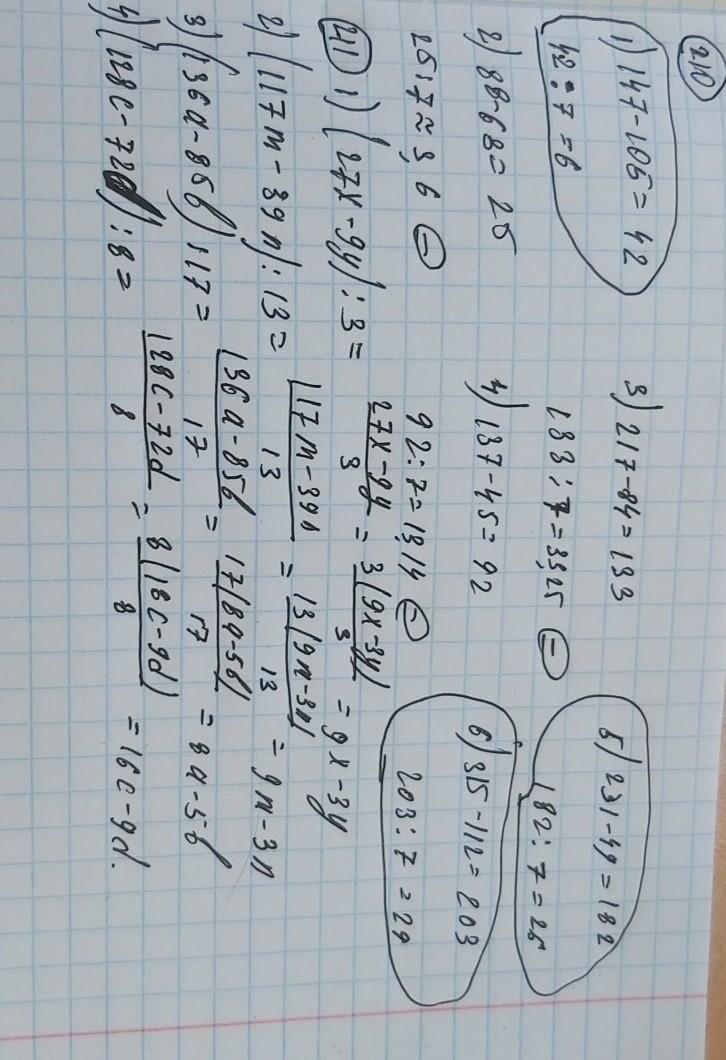 210
1) 147-105=42
42:7=6
3) 217-84=133
133:7=33,25 –
5) 231-49=182
182:7=26
2) 88-68=25
25:7≈3,6 –
4) 137-45=92
92:7=13,14 –
6) 315-112=203
203:7=29
211 1) (27x-9y):3= 27x-9y/3 = 3(9x-3y)/3 = 9x-3y
2) (117m-39n):13= 117m-39n/13 = 13(9m-3n)/13 = 9m-3n
3) (136a-85b):17= 136a-85b/17 = 17(8a-5b)/17 = 8a-5b
4) (128c-72d):8= 128c-72d/8 = 8(16c-9d)/8 = 16c-9d.